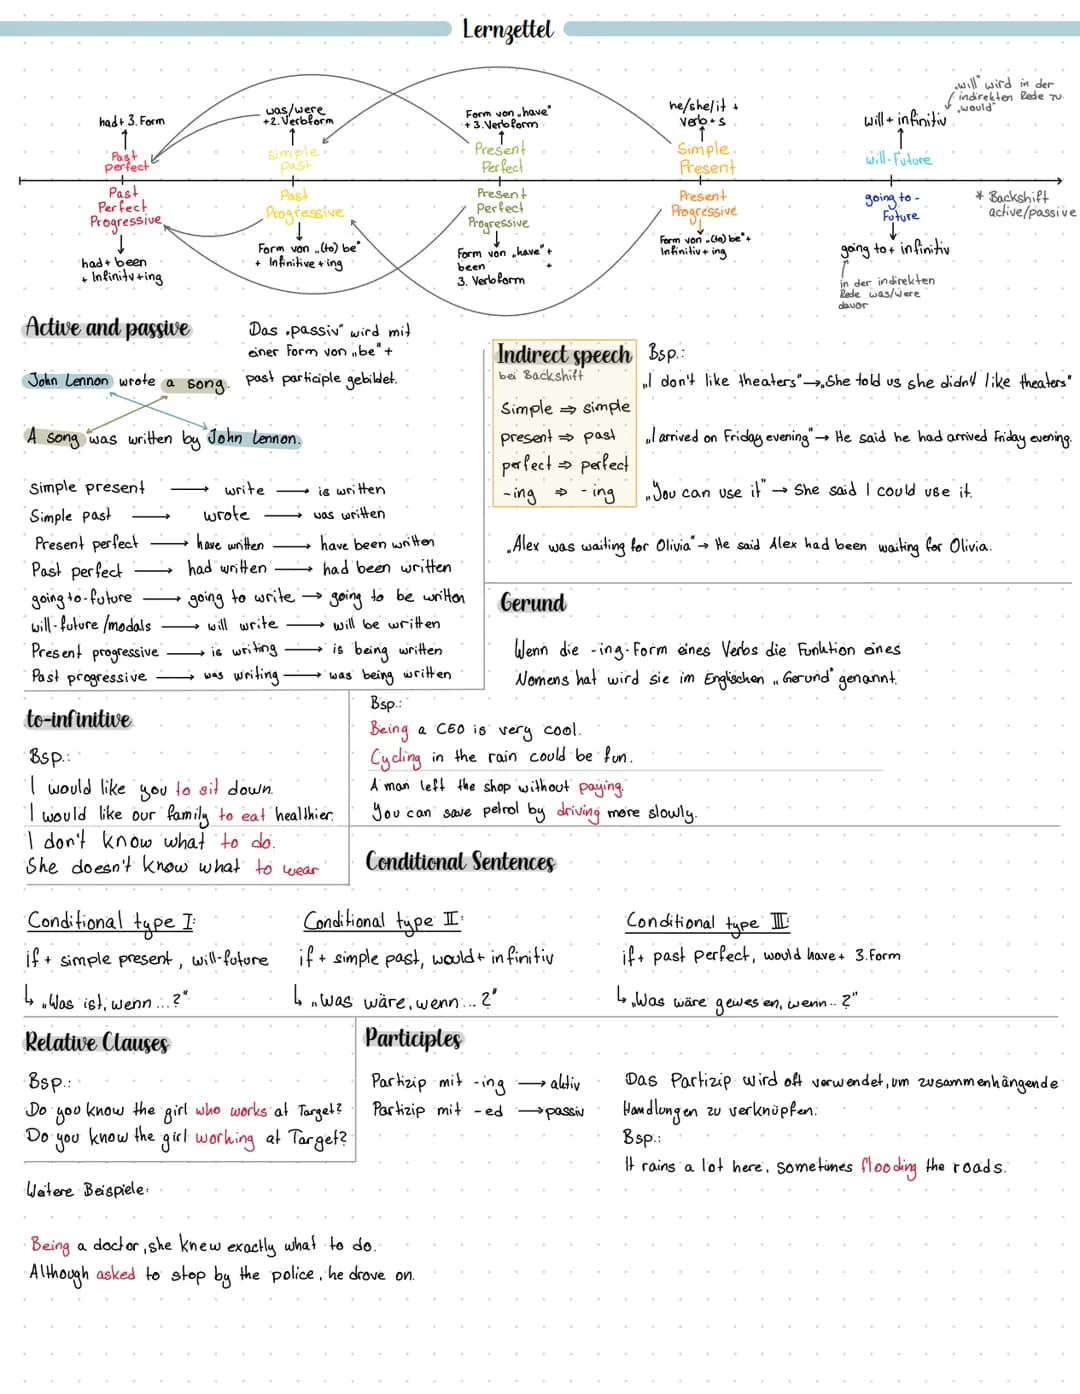 Lernzettel
had + 3. Form
was/were
+2. Verbform
Form von „have"
+ 3. Verbform
he/she/it +
Verb + s
will + infinitiv
„will" wird in der
indirekten Rede zu
„would"
Past
perfect
simple
past
Present
Perfect
Simple
Present
will-Future
Past
Perfect
Progressive
Past
Progressive
Present
Perfect
Progressive
Present
Progressive
going to -
Future
* Backshift
active/passive
had + been
+ Infinitv + ing
Form von „(to) be"
+ Infinitive + ing
Form von „have" +
been +
3. Verbform
Form von „(to) be" +
Infinitiv + ing
going to + infinitiv
in der indirekten
Rede was/were
davor
Active and passive
Das „passiv" wird mit
einer Form von „be" +
past participle gebildet.
John Lennon wrote a song.
A song was written by John Lennon.
Simple present → write → is written
Simple past → wrote → was written
Present perfect → have written → have been written
Past perfect → had written → had been written
going to-future → going to write → going to be written
will-future/modals → will write → will be written
Present progressive → is writing → is being written
Past progressive → was writing → was being written
Indirect speech
bei Backshift
Simple ⇒ simple
present ⇒ past
perfect ⇒ perfect
-ing ⇒ -ing
Bsp.:
„I don't like theaters" → „She told us she didn't like theaters"
„I arrived on Friday evening" → He said he had arrived Friday evening.
„You can use it" → She said I could use it.
„Alex was waiting for Olivia" → He said Alex had been waiting for Olivia.
Gerund
Wenn die -ing-Form eines Verbs die Funktion eines
Nomens hat wird sie im Englischen „Gerund" genannt.
Bsp.:
Being a CEO is very cool.
Cycling in the rain could be fun.
A man left the shop without paying.
You can save petrol by driving more slowly.
to-infinitive
Bsp.:
I would like you to sit down.
I would like our family to eat healthier.
I don't know what to do.
She doesn't know what to wear
Conditional Sentences
Conditional type I:
if + simple present, will-future
↳ „Was ist, wenn ...?"
Conditional type II:
if + simple past, would + infinitiv
↳ „Was wäre, wenn ... ?"
Conditional type III:
if + past perfect, would have + 3. Form
↳ „Was wäre gewesen, wenn .. ?"
Relative Clauses
Bsp.:
Do you know the girl who works at Target?
Do you know the girl working at Target?
Participles
Partizip mit -ing → aktiv
Partizip mit -ed → passiv
Das Partizip wird oft verwendet, um zusammenhängende
Handlungen zu verknüpfen.
Bsp.:
It rains a lot here, sometimes flooding the roads.
Weitere Beispiele:
Being a doctor, she knew exactly what to do.
Although asked to stop by the police, he drove on.